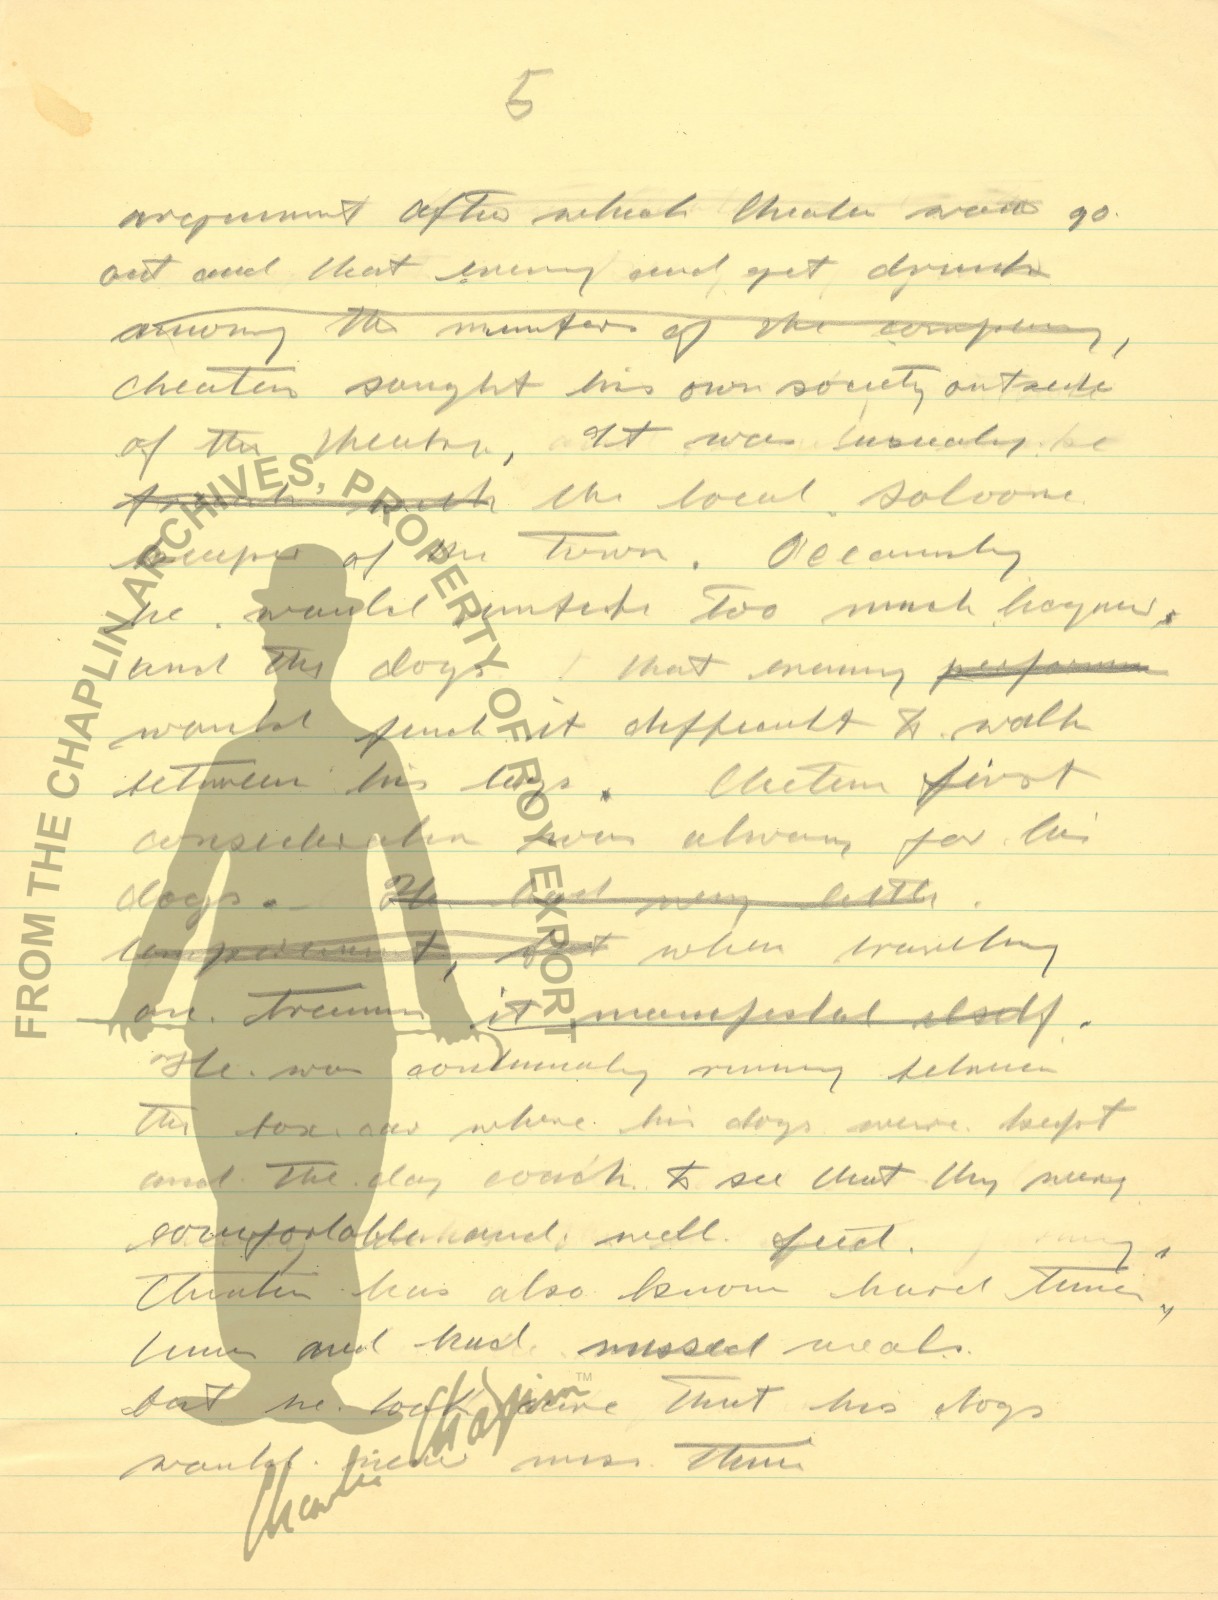 5
argument after which Cheater would go
out and that evening and get drunk
among the members of the company,
Cheater sought his own society outside
of the theatre, It was usualy be
the local saloone
keeper of the Town. Occaunly
he would imbibe Too much
and the dogs that evening performe
would find it difficult to walk
between his legs. first
consideration was always for his
dogs. He had very little
temperament, but when traveling
on trains it manifestal itself.
He was continualy running between
the box car where his dogs were kept
and The day coach to see that they were
comfortable and well feed.
has also known hard times
times and had missed meals.
but he took care That his dogs
would never miss Them
FROM THE CHAPLIN ARCHIVES, PROPERTY OF ROY EXPORT
Charlie Chaplin™